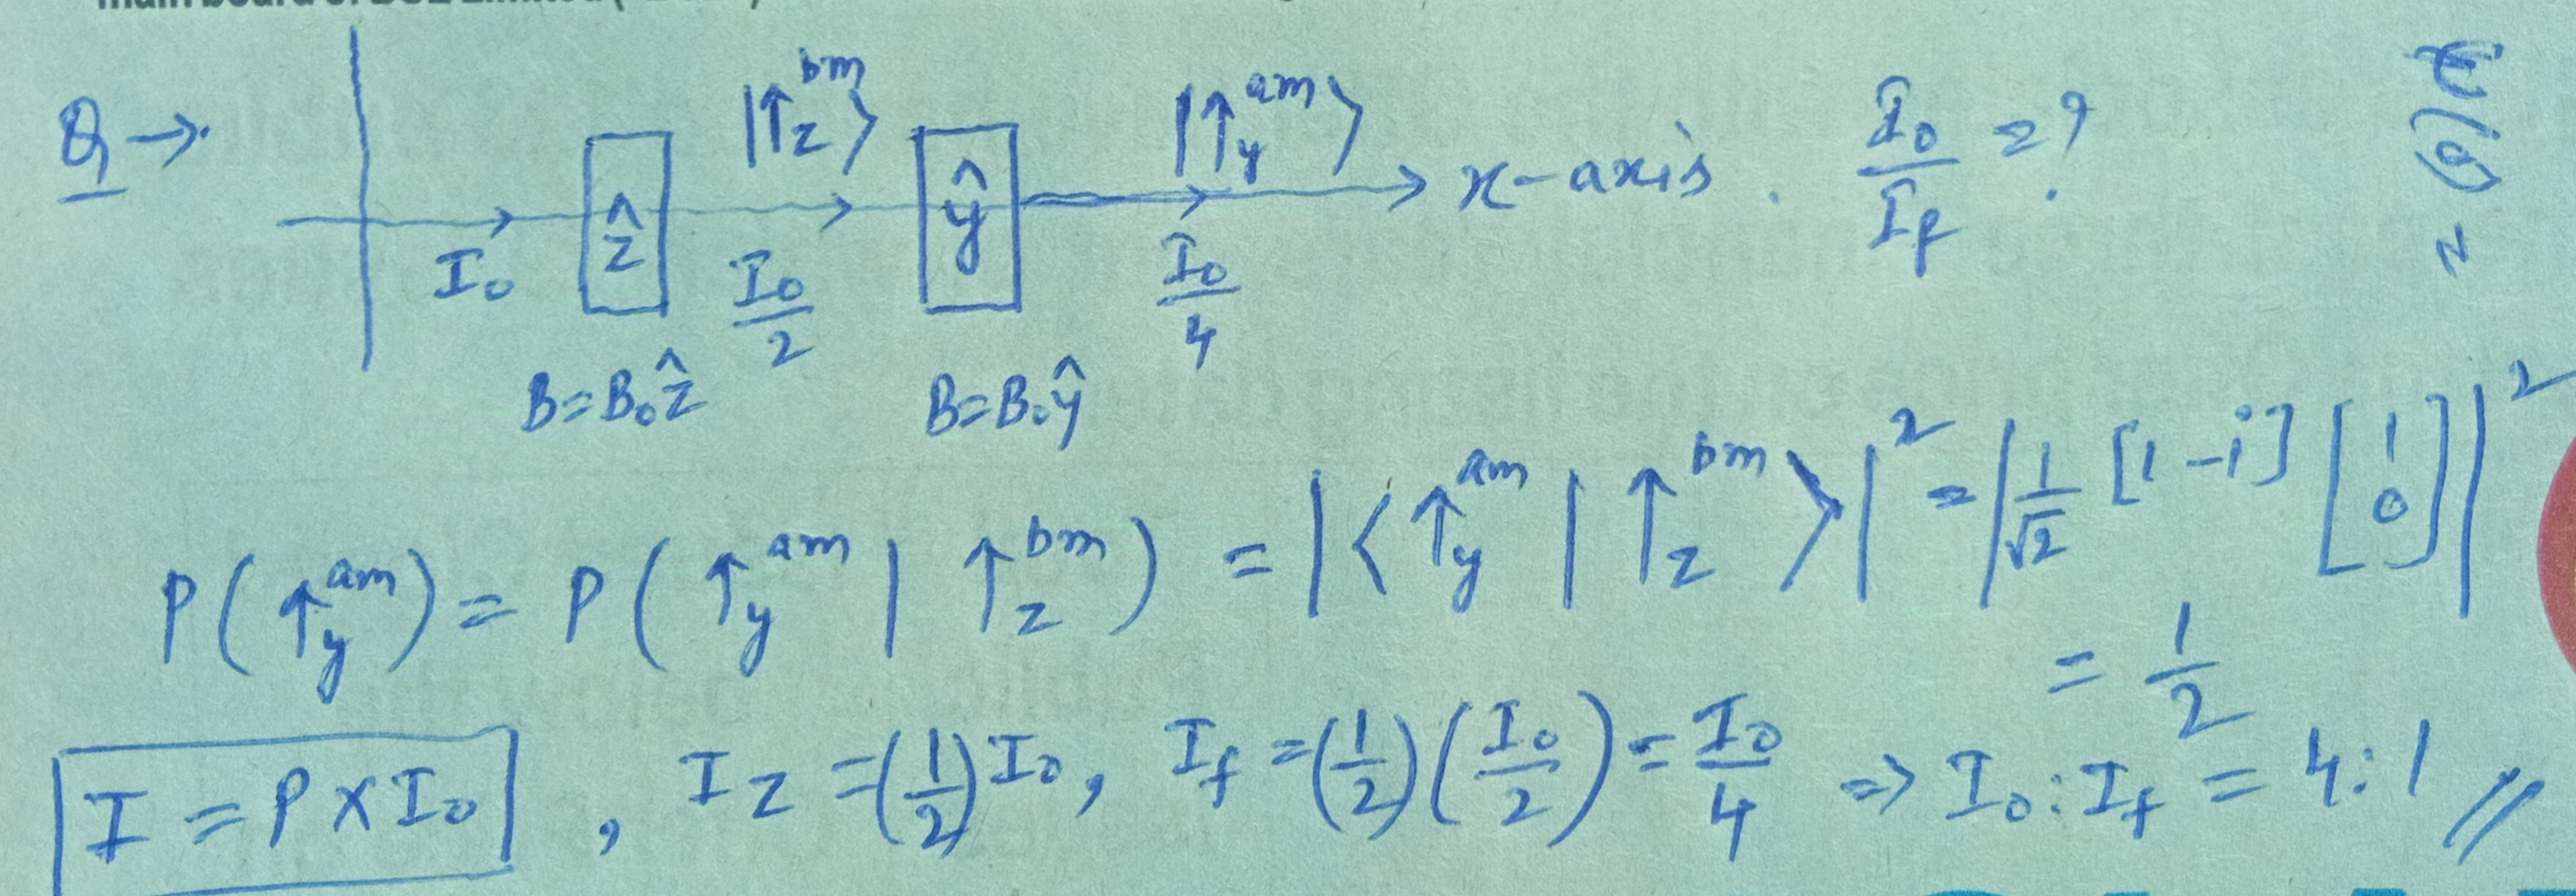 Q →
|↑z^bm⟩ |↑y^am⟩ I₀/I_f = ?
ẑ ŷ x-axis.
I₀ I₀/2 I₀/4
B=B₀ẑ B=B₀ŷ
P(↑y^am) = P(↑y^am | ↑z^bm) = |⟨↑y^am | ↑z^bm⟩|² = |1/√2 [1 -i] [1 0]|²
= 1/2
I = P × I₀ , I_z = (1/2) I₀, I_f = (1/2)(I₀/2) = I₀/4 ⇒ I₀ : I_f = 4:1 //